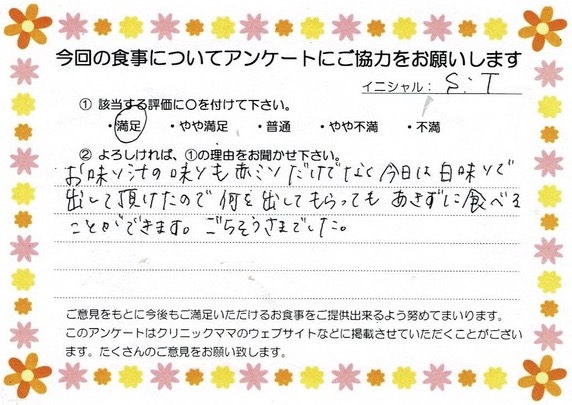 今回の食事についてアンケートにご協力をお願いします
イニシャル： S.T
① 該当する評価に〇を付けて下さい。
・満足 ・やや満足 ・普通 ・やや不満 ・不満
② よろしければ、①の理由をお聞かせ下さい。
お味噌汁の味も赤ミソだけでなく今日は白味噌で
出して頂けたので何を出してもらってもあきずに食べる
ことができます。ごちそうさまでした。
ご意見をもとに今後もご満足いただけるお食事をご提供出来るよう努めてまいります。
このアンケートはクリニックママのウェブサイトなどに掲載させていただくことがござい
ます。たくさんのご意見をお願い致します。